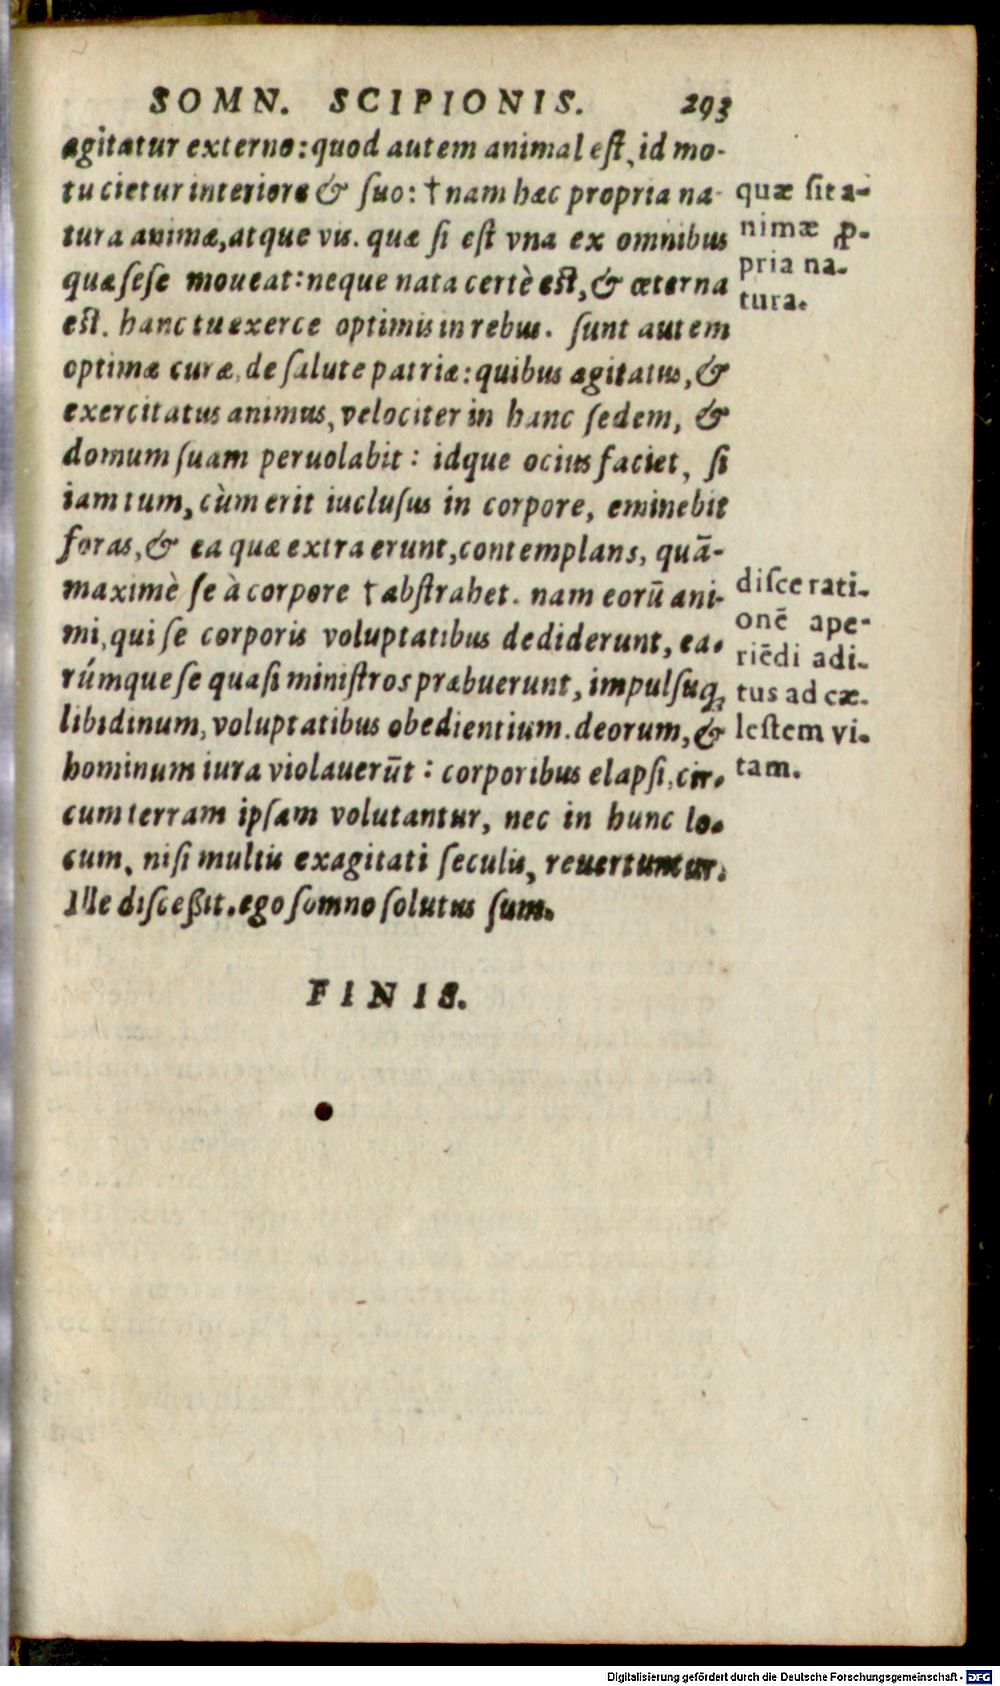 SOMN. SCIPIONIS. 293
agitatur externo: quod autem animal est, id mo-
tu cietur interiore & suo: † nam hæc propria na-
tura animæ, atque vis. quæ si est vna ex omnibus
quæ sese moueat: neque nata certè est, & æterna
est. hanc tu exerce optimis in rebus. sunt autem
optimæ curæ, de salute patriæ: quibus agitatus, &
exercitatus animus, velociter in hanc sedem, &
domum suam peruolabit: idque ocius faciet, si
iam tum, cùm erit iuclusus in corpore, eminebit
foras, & ea quæ extra erunt, contemplans, quā-
maximè se à corpore † abstrahet. nam eorū ani-
mi, qui se corporis voluptatibus dediderunt, ea-
rúmque se quasi ministros præbuerunt, impulsuq;
libidinum, voluptatibus obedientium. deorum, &
hominum iura violauerūt: corporibus elapsi, cir-
cum terram ipsam volutantur, nec in hunc lo-
cum, nisi multis exagitati seculis, reuertuntur.
Ille discessit. ego somno solutus sum.
FINIS.
quæ sit a-
nimæ ꝓ-
pria na-
tura.
disce rati-
onē ape-
riēdi adi-
tus ad cæ-
lestem vi-
tam.
Digitalisierung gefördert durch die Deutsche Forschungsgemeinschaft - DFG